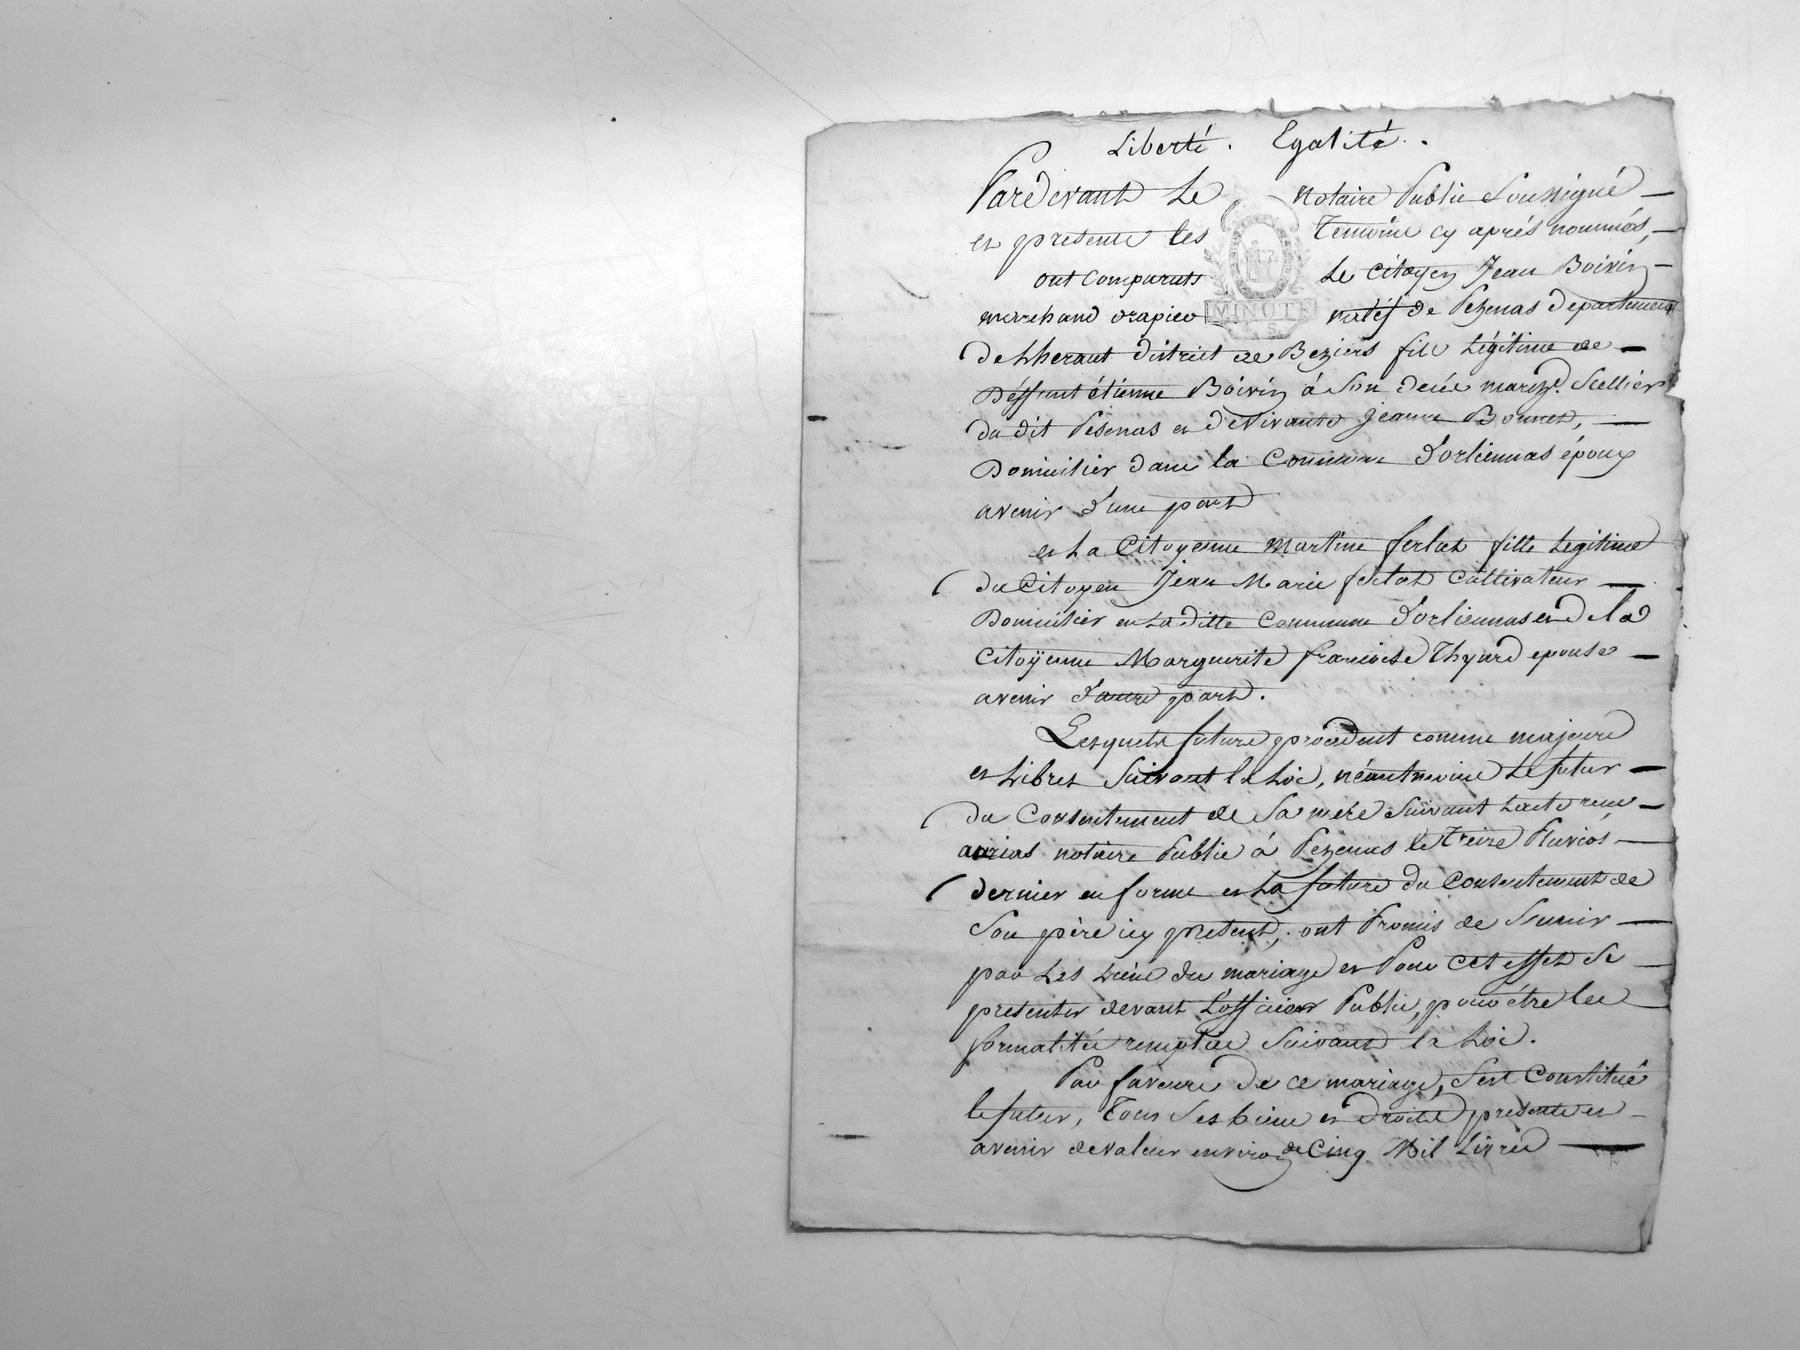 Liberté. Egalité.
Pardevant Le notaire Public Soussigné
et presents les Temoins cy aprés nommés,
ont Comparuts Le Citoyen Jean Boivin
marchand drapier MINUTE natif de Pezenas departement
de Lheraut district de Beziers fils Légitime de
Déffunt étienne Boivin à Son decée march.d Sellier
du dit Pesenas et de Vivante Jeanne Bonnet,
Domicilier dans la Commune d'orliennas époux
avenir d'une part
et La Citoyenne Martine ferlat fille Legitime
du Citoyen Jean Marie ferlat Cultivateur
Domicilier en La ditte Commune d'orliennas et de la
Citoÿenne Marguerite francoise Thynrd epouse
avenir d'autre part.
Lesquels futurs procedent comme majeurs
et Libres Suivant la Loi, néantmoins Le futur
du Consentement de Sa mere Suivant Lacte recu
aurias notaire Public à Pezenas le treize Pluvios
dernier en forme et La future du Consentement de
Son père icy present, ont Promis de Sunir
par Les Liens du mariage et Pour cet effet Se
presenter devant L'officier Public, pour être les
formalités remplies Suivant la Loi.
Par faveure de ce mariage, Sest Constitué
le futur, Tous Ses biens et Droits presents et
avenir de valeur environ de Cinq Mil Livres